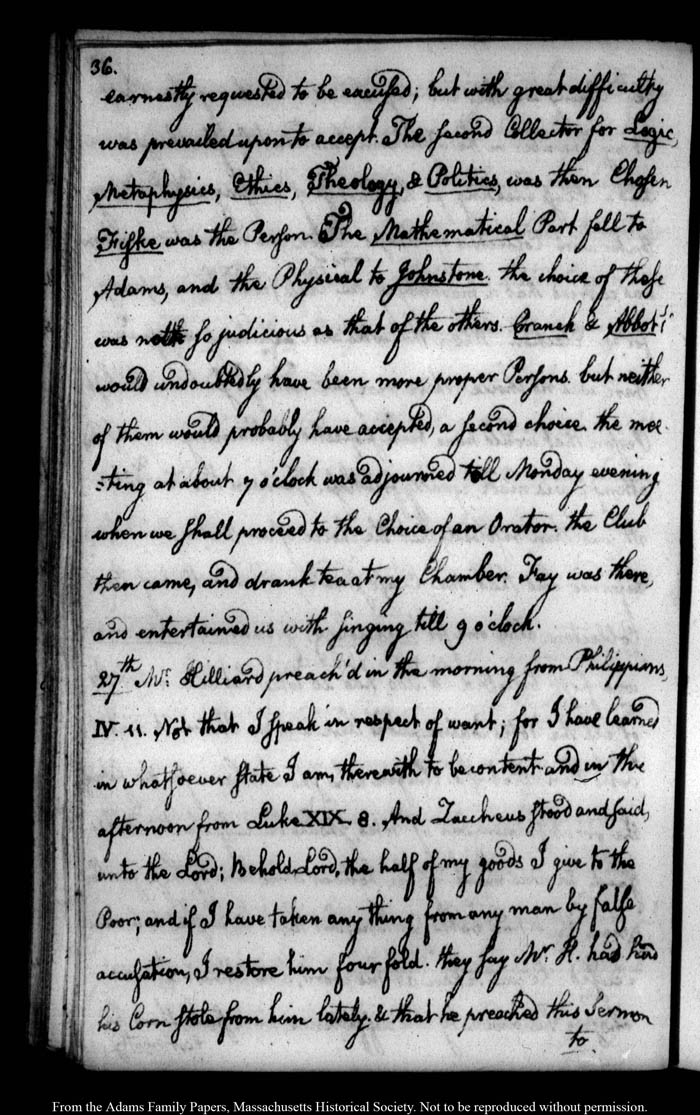 36.
earnestly requested to be excused; but with great difficulty
was prevailed upon to accept. The second Collector for Logic,
Metaphysics, Ethics, Theology, & Politics, was then Chosen
Fiske was the Person. The Mathematical Part fell to
Adams, and the Physical to Johnstone. the choice of these
was not so judicious as that of the others. Cranch & Abbot 1st
would undoubtedly have been more proper Persons. but neither
of them would probably have accepted, a second choice. the mee-
=ting at about 7 o'clock was adjourned till Monday evening
when we shall proceed to the Choice of an Orator. the Club
then came, and drank tea at my Chamber. Fay was there,
and entertained us with singing till 9 o'clock.
27th Mr. Hilliard preach'd in the morning from Philippians,
IV. 11. Not that I speak in respect of want; for I have learned
in whatsoever state I am, therewith to be content and in the
afternoon from Luke XIX. 8. And Zaccheus stood and said,
unto the Lord; Behold Lord, the half of my goods I give to the
Poor; and if I have taken any thing from any man by false
accusation, I restore him four fold. they say Mr. H. had
his Corn stole from him lately. & that he preached this Sermon
to
From the Adams Family Papers, Massachusetts Historical Society. Not to be reproduced without permission.